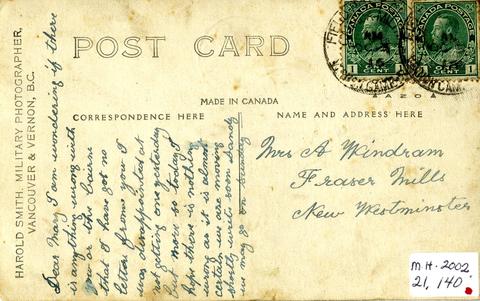 POST CARD
MADE IN CANADA
CORRESPONDENCE HERE
NAME AND ADDRESS HERE
HAROLD SMITH, MILITARY PHOTOGRAPHER,
VANCOUVER & VERNON, B.C.
Dear Mary I am wondering if there
is anything wrong with
you or the
that I have got no
letter from you I
was disappointed at
not getting one yesterday
but more so today I
hope there is nothing
wrong as it is almost
certain we are moving
shortly write soon
we may go on Sunday
Mrs A Windram
Fraser Mills
New Westminster
CANADA POSTAGE
1 CENT 1
CANADA POSTAGE
1 CENT 1
M.H. 2002
21, 140